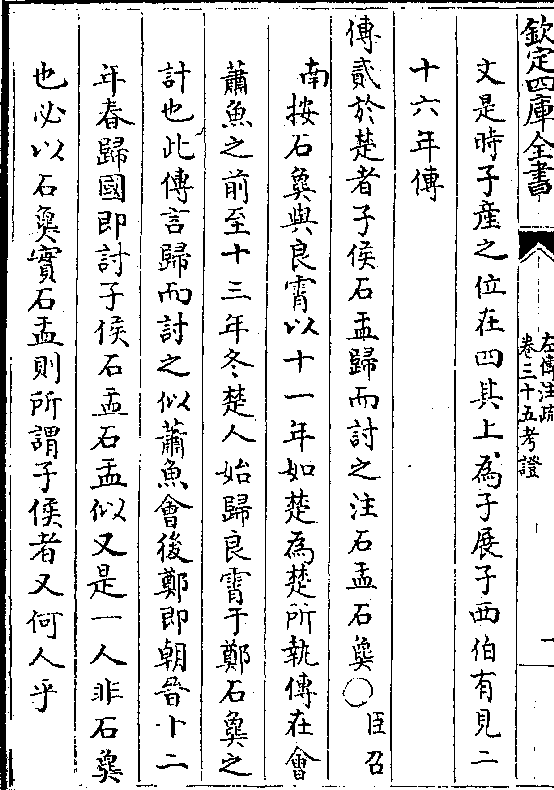 欽定四庫全書
左傳注疏
卷三十五考證
一
文是時子產之位在四其上為子展子西伯有見二
十六年傳
傳貳於楚者子侯石盂歸而討之注石盂石㚟○臣召
南按石㚟與良霄以十一年如楚為楚所執傳在會
蕭魚之前至十三年冬楚人始歸良霄于鄭石㚟之
計也此傳言歸而討之似蕭魚會後鄭即朝晉十二
年春歸國即討子侯石盂石盂似又是一人非石㚟
也必以石㚟實石盂則所謂子侯者又何人乎